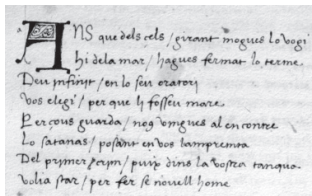 ANS que dels cels / girant mogues lo vogi
hi dela mar / hagues fermat lo terme
Deu infinit / en lo seu oratori
vos elegi / per que li fosseu mare
Perçous guarda / nog vingues al encontre
Lo satanas / posant en vos lampremta
Del primer crim / puix dins la vostra tanqua
volia star / per fer se novell home